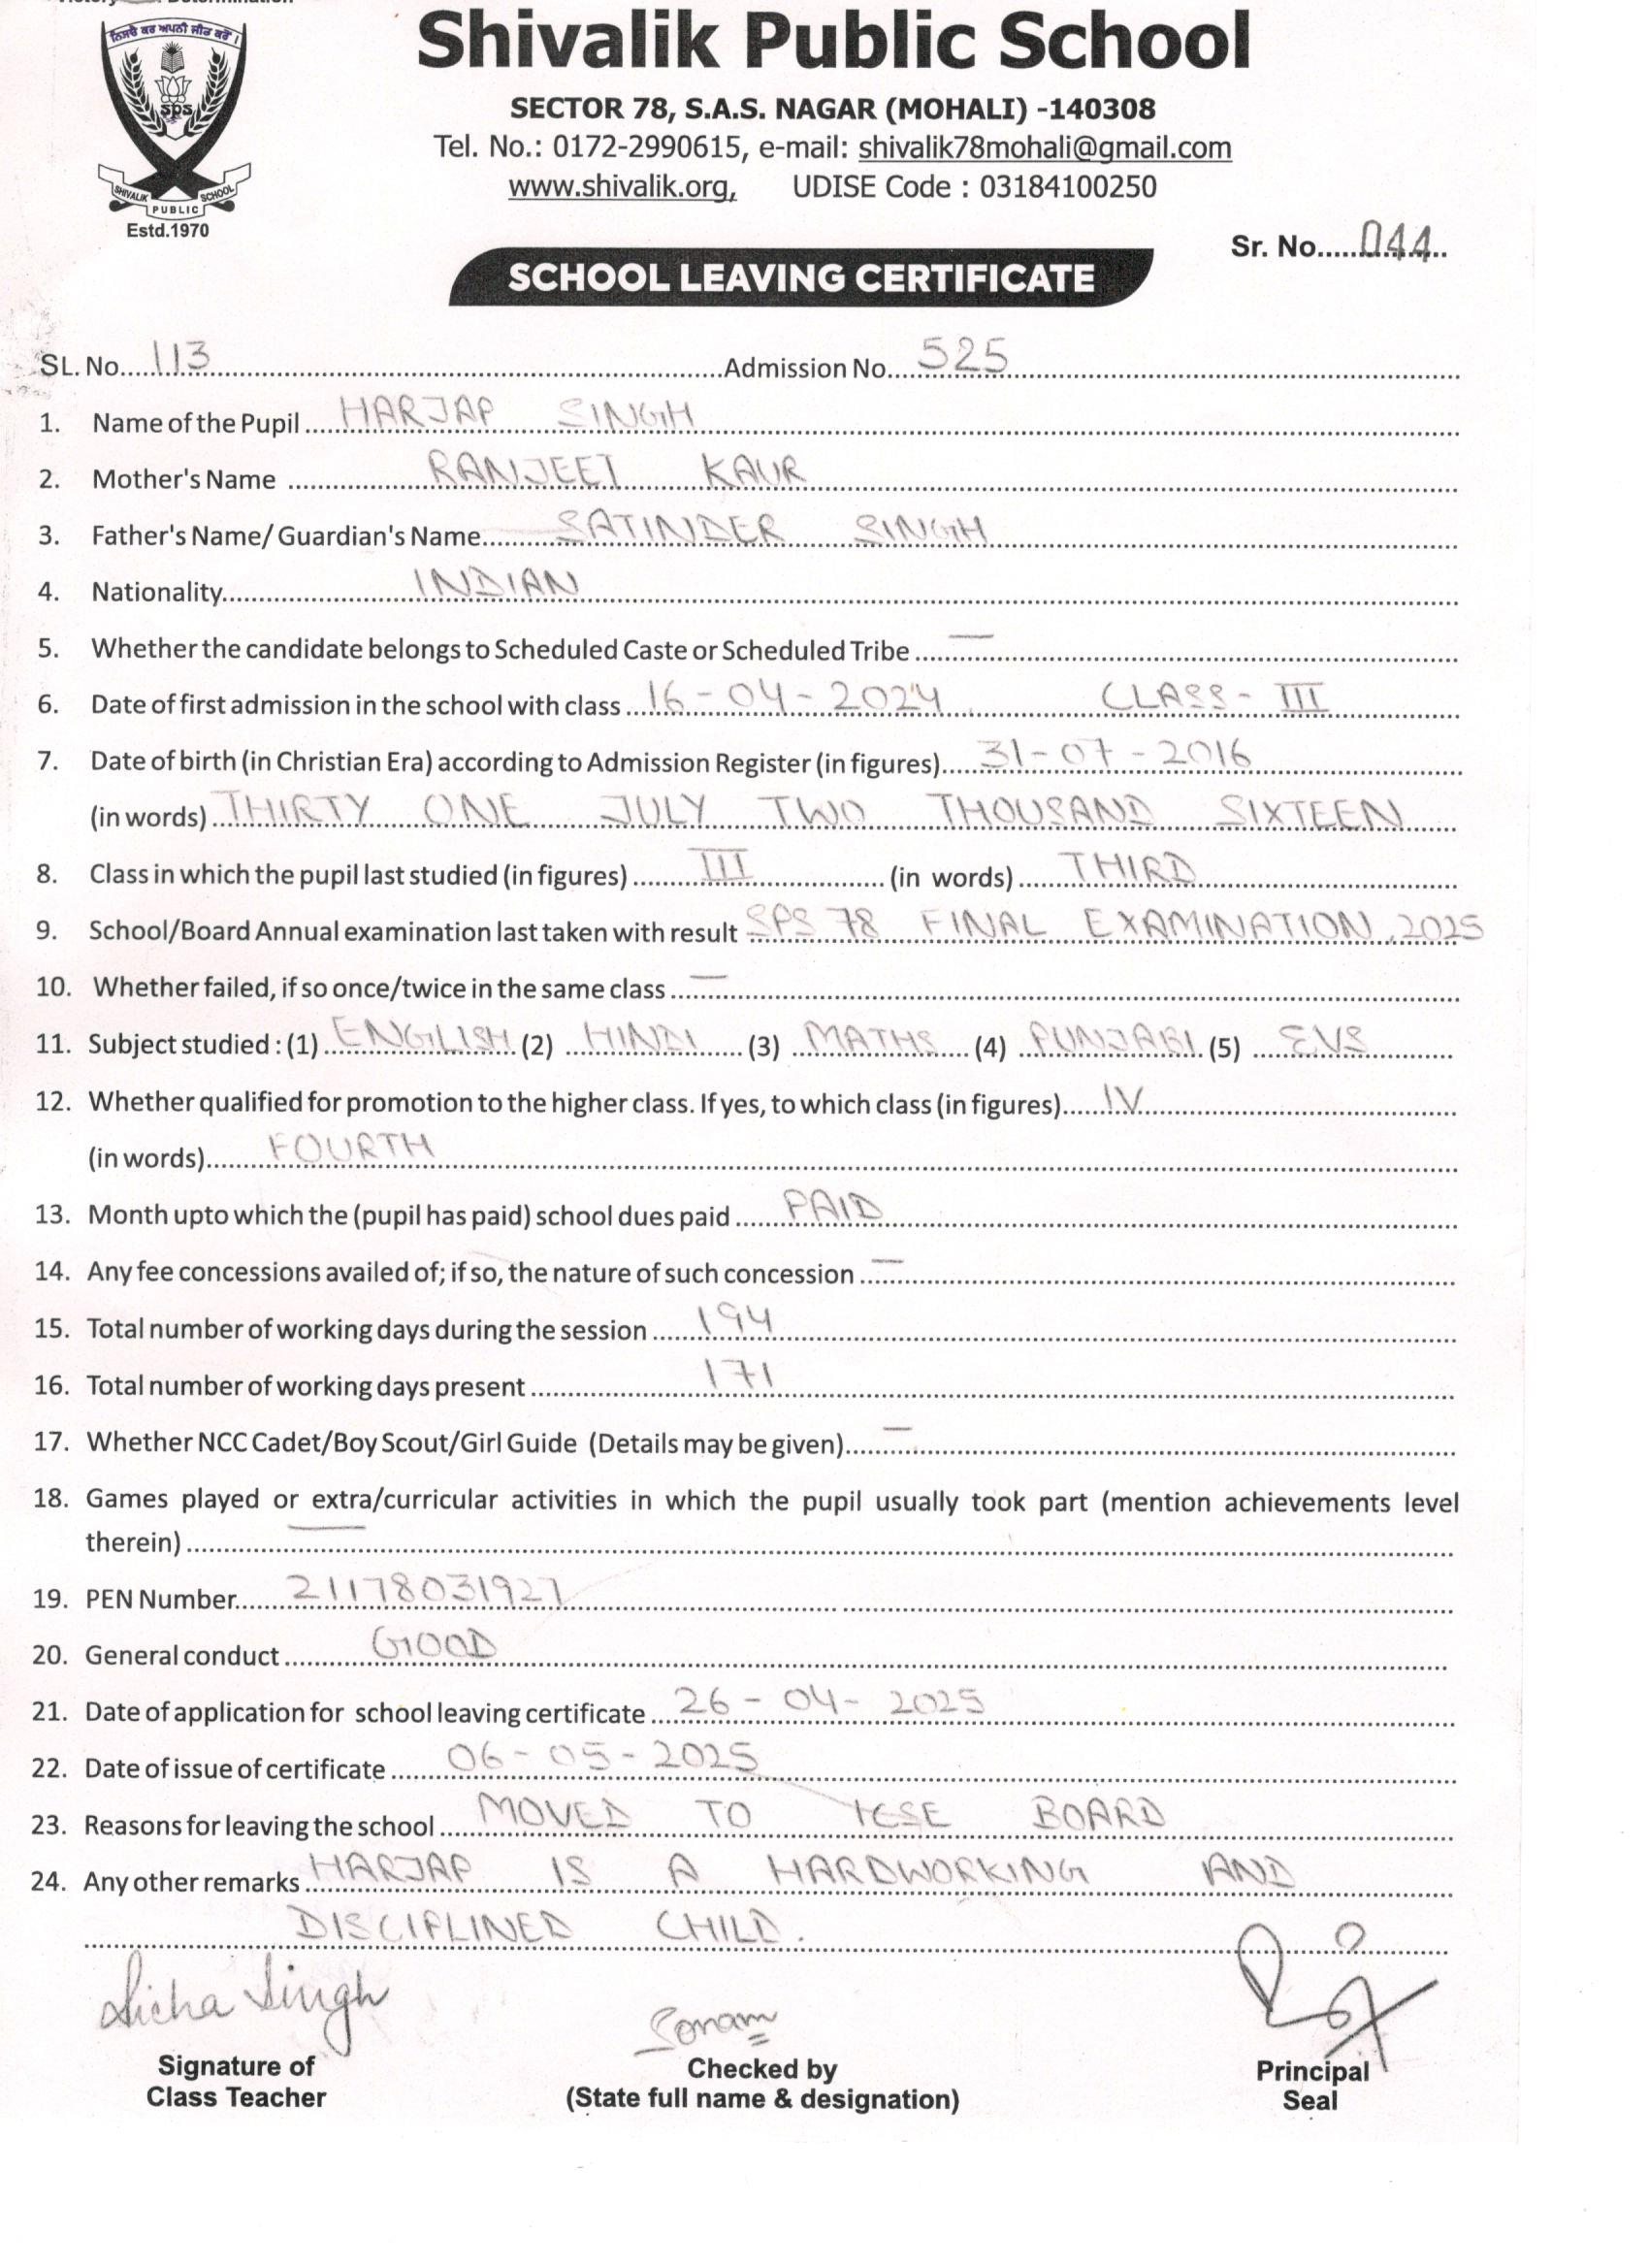 ਨਿਸਚੈ ਕਰ ਅਪਨੀ ਜੀਤ ਕਰੋਂ।
Shivalik Public School
SECTOR 78, S.A.S. NAGAR (MOHALI) -140308
Tel. No.: 0172-2990615, e-mail: shivalik78mohali@gmail.com
www.shivalik.org, UDISE Code : 03184100250
sps
SHIVALIK PUBLIC SCHOOL
Estd.1970
Sr. No......044..
SCHOOL LEAVING CERTIFICATE
SL. No. 113 Admission No. 525
1. Name of the Pupil HARJAP SINGH
2. Mother's Name RANJEET KAUR
3. Father's Name/ Guardian's Name SATINDER SINGH
4. Nationality INDIAN
5. Whether the candidate belongs to Scheduled Caste or Scheduled Tribe —
6. Date of first admission in the school with class 16-04-2024 CLASS- III
7. Date of birth (in Christian Era) according to Admission Register (in figures) 31-07-2016
(in words) THIRTY ONE JULY TWO THOUSAND SIXTEEN
8. Class in which the pupil last studied (in figures) III (in words) THIRD
9. School/Board Annual examination last taken with result SPS 78 FINAL EXAMINATION, 2025
10. Whether failed, if so once/twice in the same class —
11. Subject studied : (1) ENGLISH (2) HINDI (3) MATHS (4) PUNJABI (5) EVS
12. Whether qualified for promotion to the higher class. If yes, to which class (in figures) IV
(in words) FOURTH
13. Month upto which the (pupil has paid) school dues paid PAID
14. Any fee concessions availed of; if so, the nature of such concession —
15. Total number of working days during the session 194
16. Total number of working days present 171
17. Whether NCC Cadet/Boy Scout/Girl Guide (Details may be given) —
18. Games played or extra/curricular activities in which the pupil usually took part (mention achievements level
therein) —
19. PEN Number 21178031927
20. General conduct GOOD
21. Date of application for school leaving certificate 26-04-2025
22. Date of issue of certificate 06-05-2025
23. Reasons for leaving the school MOVED TO ICSE BOARD
24. Any other remarks HARJAP IS A HARDWORKING AND
DISCIPLINED CHILD.
Singh
Sonam
Signature of
Class Teacher
Checked by
(State full name & designation)
Principal
Seal